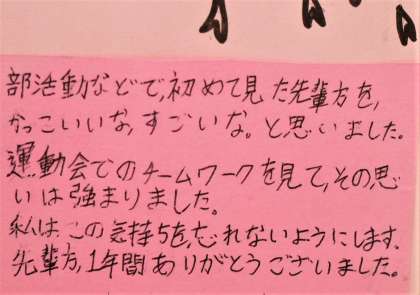 部活動などで、初めて見た先輩方を、
かっこいいな、すごいな。と思いました。
運動会でのチームワークを見て、その思
いは強まりました。
私は、この気持ちを、忘れないようにします。
先輩方、1年間ありがとうございました。